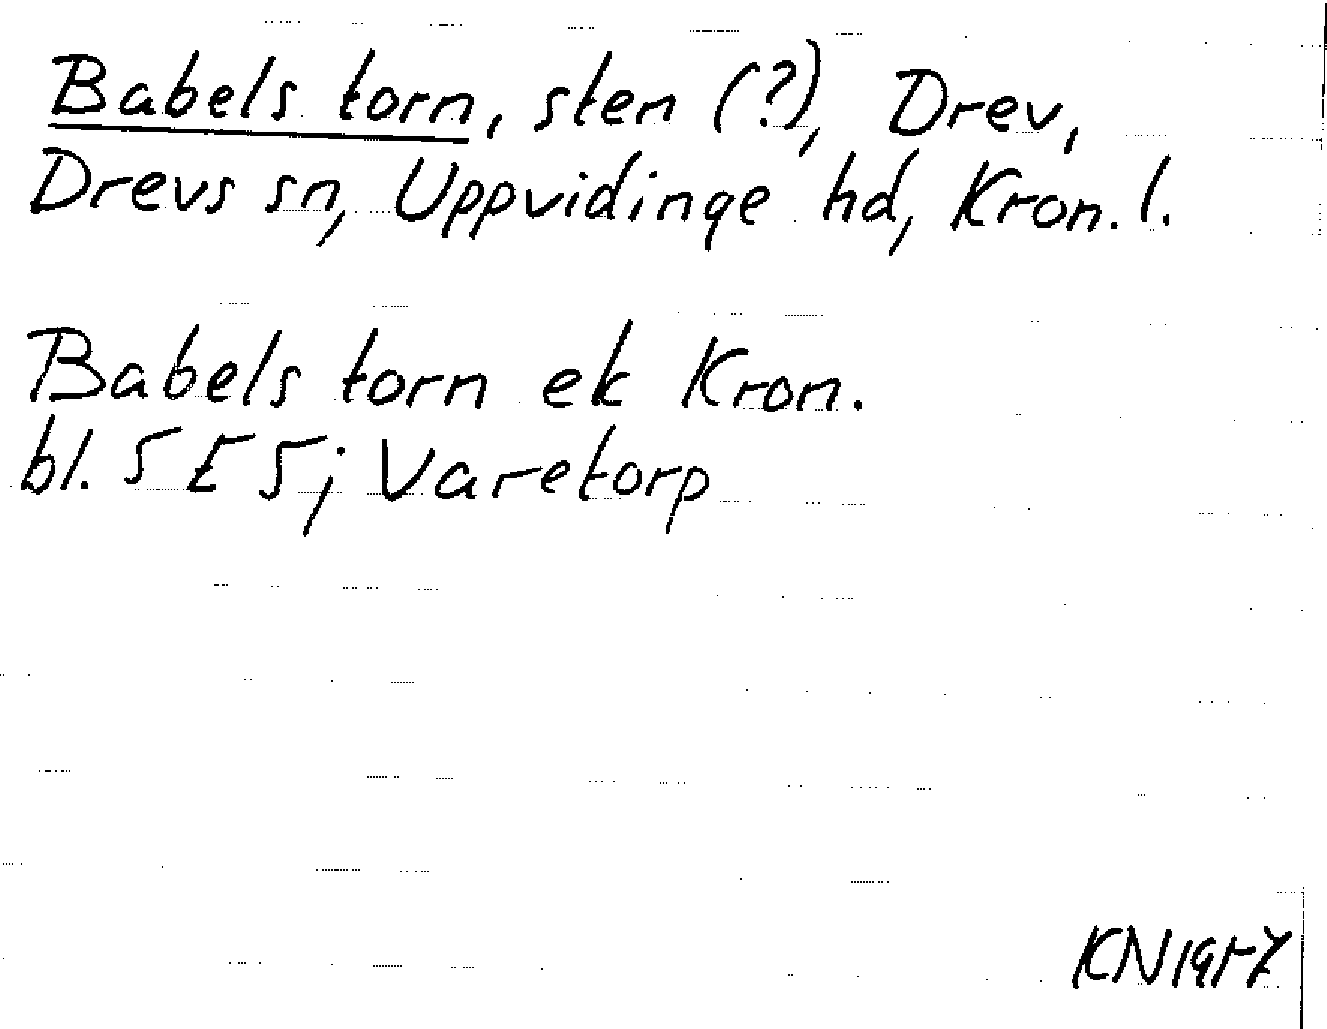 Babels torn, sten (?), Drev,
Drevs sn, Uppvidinge hd, Kron. l.
Babels torn ek Kron.
bl. 5E5; Varetorp
KN1957